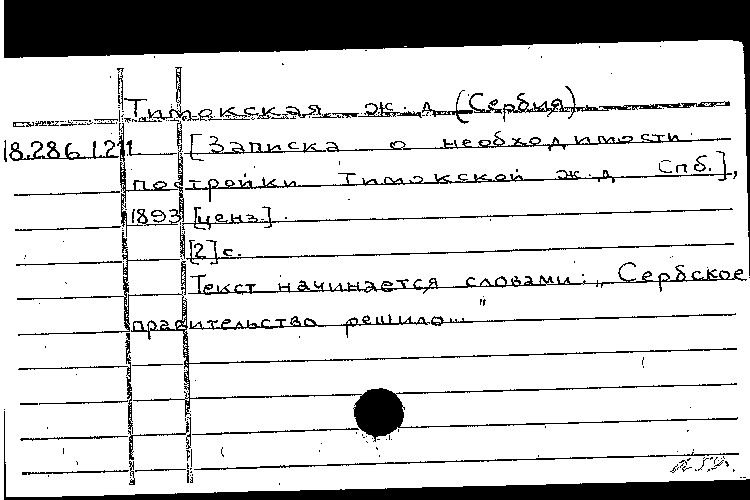 Тимокская ж.д (Сербия)
18.286.1.211 [Записка о необходимости
постройки Тимокской ж.д. Спб.],
1893 [ценз.].
[2] с.
Текст начинается словами: „Сербское
правительство решило..."